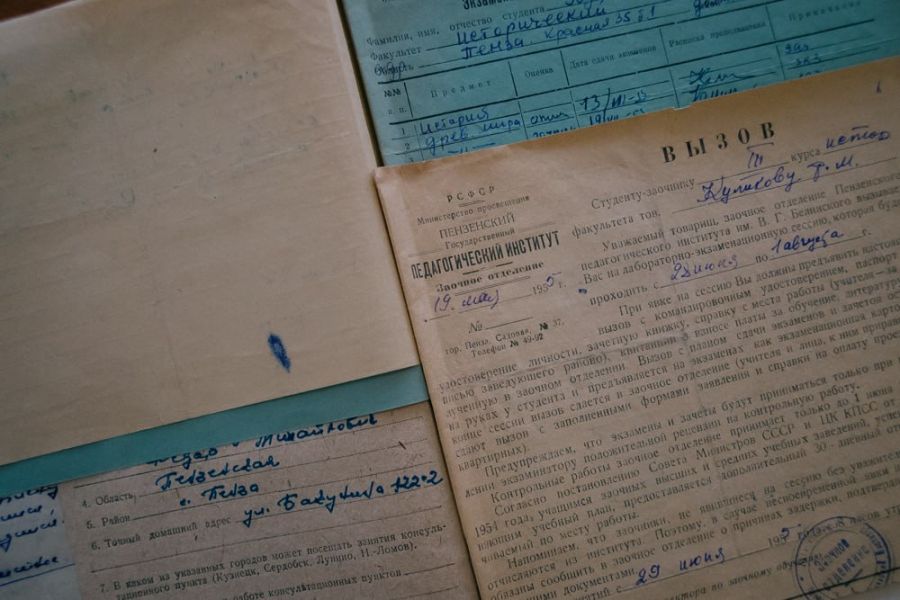 Экзаме
Фамилия, имя, отчество студента
Факультет исторический
Область Пенза Красная 35
№№ п. п.
Предмет
Оценка
Дата сдачи экзамена
Роспись преподавателя
Примечание
1 История
2 древ. мира
ВЫЗОВ
РСФСР
Министерство просвещения
ПЕНЗЕНСКИЙ
Государственный
ПЕДАГОГИЧЕСКИЙ ИНСТИТУТ
Заочное отделение
19 мая 1955 г.
№
гор. Пенза, Садовая, № 37.
Телефон № 49-92
Студенту-заочнику III курса истор
факультета тов. Куликову Ф. М.
Уважаемый товарищ, заочное отделение Пензенского
педагогического института им. В. Г. Белинского вызывает
Вас на лабораторно-экзаменационную сессию, которая буд
проходить с 28 июня по 1 августа г.
При явке на сессию Вы должны предъявить настоя
вызов с командировочным удостоверением, паспорт
удостоверение личности, зачетную книжку, справку с места работы (учителя—за
писью заведующего районо), квитанцию о взносе платы за обучение, литературу
лученную в заочном отделении. Вызов с планом сдачи экзаменов и зачетов
на руках у студента и предъявляется на экзаменах как экзаменационная карто
конце сессии вызов сдается в заочное отделение (учителя и лица, к ним приравн
дают вызов с заполненными формами заявления и справки на оплату прое
квартирных).
Предупреждаем, что экзамены и зачеты будут приниматься только при
лении экзаменатору положительной рецензии на контрольную работу.
Контрольные работы заочное отделение принимает только до 1 июня
Согласно постановлению Совета Министров СССР и ЦК КПСС от
1954 года, учащимся заочных высших и средних учебных заведений, успе
няющим учебный план, предоставляется дополнительный 30-дневный от
чиваемый по месту работы.
Напоминаем, что заочники, не явившиеся на сессию без уважите
отчисляются из института. Поэтому, в случае несвоевременной явк
обязаны сообщить в заочное отделение о причинах задержки, подтверд
ными документами.
с 29 июня 195 года часов
ректора по заочному
заочное отделение
Федор Михайлович
4. Область Пензенская
5. Район г. Пенза
6. Точный домашний адрес ул. Бакунина 122-2
7. В каком из указанных городов может посещать занятия консуль-
тационного пункта (Кузнецк, Сердобск, Лунино, Н.-Ломов).
работе консультационных пунктов